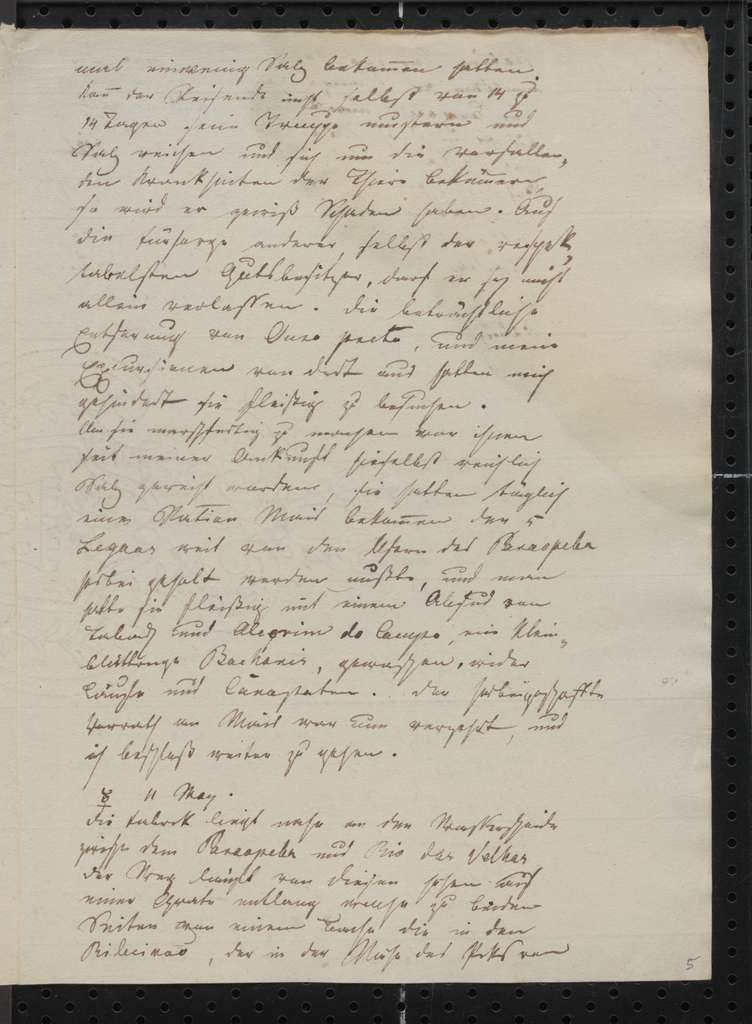 und einwenig Salz bekommen hatten.
Kann der Reisende nicht selbst von 14 zu
14 Tagen seine Truppe mustern und
Salz reichen und sich um die vorfallen-
den Krankheiten der Thiere bekümern,
so wird er gewiß Schaden haben. Auf
die Fürsorge anderer, selbst der respek-
tabelsten Gutsbesitzer, darf er sich nicht
allein verlassen. Die beträchtliche
Entfernung von Ouro preto, und meine
Excursionen von dort aus hatten mich
gehindert sie fleißig zu besuchen.
Um sie marschfertig zu machen war ihnen
seit meiner Ankunft hieselbst reichlich
Salz gereicht worden, sie hatten täglich
eine Ration Mais bekommen der 5
Legoas weit von den Ufern des Paraopeba
herbei geholt werden mußte, und man
hatte sie fleißig mit einem Absud von
Taback und Alecrim do Campo, eine klein-
blättrige Bacharis, gewaschen, wider
Läuse und Carapaten. Der herbeigeschaffte
Vorrath an Mais war nun verzehrt, und
ich beschloß weiter zu gehen.
☿ 11 May.
Die Fabrik liegt nahe an der Wasserscheide
zwischen dem Paraopeba und Rio das Velhas
der Weg läuft von diesen hohen auf
einer Grate entlang welche zu beiden
Seiten von einem Bache die in den
, der in der Nähe des Pics von
5